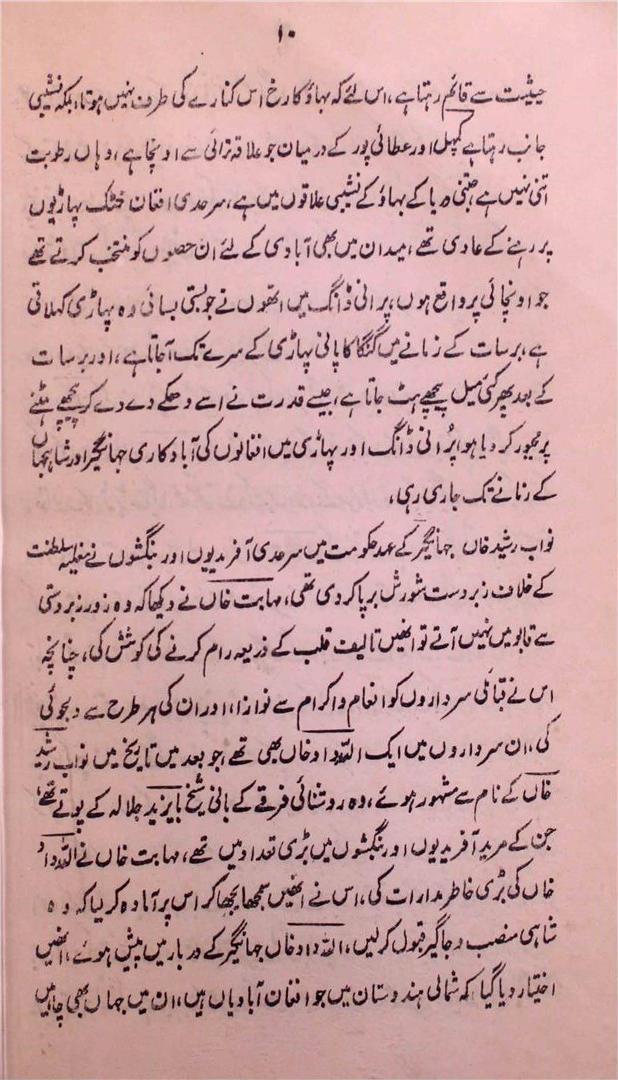 ۱۰
حیثیت سے قائم رہتا ہے، اس لئے کہ بہاؤ کا رخ اس کنارے کی طرف نہیں ہوتا، بلکہ نشیبی
جانب رہتا ہے کمپل اور عطائی پور کے درمیان جو علاقہ ترائی سے اونچا ہے، وہاں رطوبت
اتنی نہیں ہے جتنی دریا کے بہاؤ کے نشیبی علاقوں میں ہے، سرحدی افغان خشک پہاڑیوں
پر رہنے کے عادی تھے، میدان میں بھی آبادی کے لئے ان حصوں کو منتخب کرتے تھے
جو اونچائی پر واقع ہوں، پرانی ڈانگ میں انھوں نے جو بستی بسائی وہ پہاڑی کہلاتی
ہے، برسات کے زمانے میں گنگا کا پانی پہاڑی کے سرے تک آجاتا ہے، اور برسات
کے بعد پھر کئی میل پیچھے ہٹ جاتا ہے، جیسے قدرت نے اسے دھکے دے دے کر پیچھے ہٹنے
پر مجبور کر دیا ہو، پرانی ڈانگ اور پہاڑی میں افغانوں کی آباد کاری جہانگیر اور شاہجہاں
کے زمانے تک جاری رہی،
نواب رشید خاں جہانگیر کے عہد حکومت میں سرحدی آفریدیوں اور بنگشوں نے مغلیہ سلطنت
کے خلاف زبردست شورش برپا کر دی تھی، مہابت خاں نے دیکھا کہ وہ زور زبردستی
سے قابو میں نہیں آتے تو انھیں تالیف قلب کے ذریعہ رام کرنے کی کوشش کی، چنانچہ
اس نے قبائلی سرداروں کو انعام و اکرام سے نوازا، اور ان کی ہر طرح سے دلجوئی
کی، ان سرداروں میں ایک اللہ داد خاں بھی تھے، جو بعد میں تاریخ میں نواب رشید
خاں کے نام سے مشہور ہوئے، وہ روشنائی فرقے کے بانی شیخ بایزید جلالہ کے پوتے تھے،
جن کے مرید آفریدیوں اور بنگشوں میں بڑی تعداد میں تھے، مہابت خاں نے اللہ داد
خاں کی بڑی خاطر مدارات کی، اس نے انھیں سمجھا بجھا کر اس پر آمادہ کر لیا کہ وہ
شاہی منصب و جاگیر قبول کر لیں، اللہ داد خاں جہانگیر کے دربار میں پیش ہوئے، انھیں
اختیار دیا گیا کہ شمالی ہندوستان میں جو افغان آبادیاں ہیں، ان میں جہاں بھی چاہیں